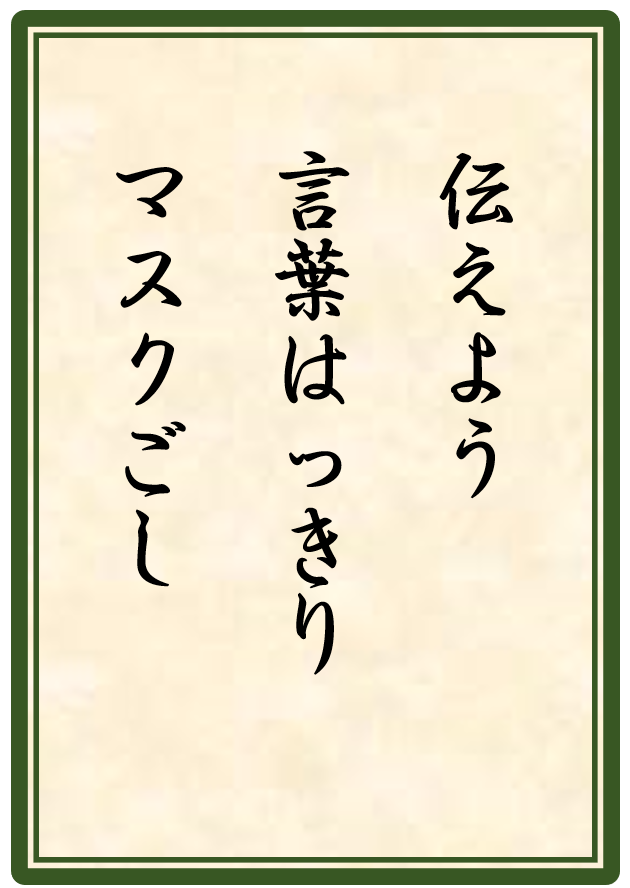 伝えよう
言葉はっきり
マスクごし